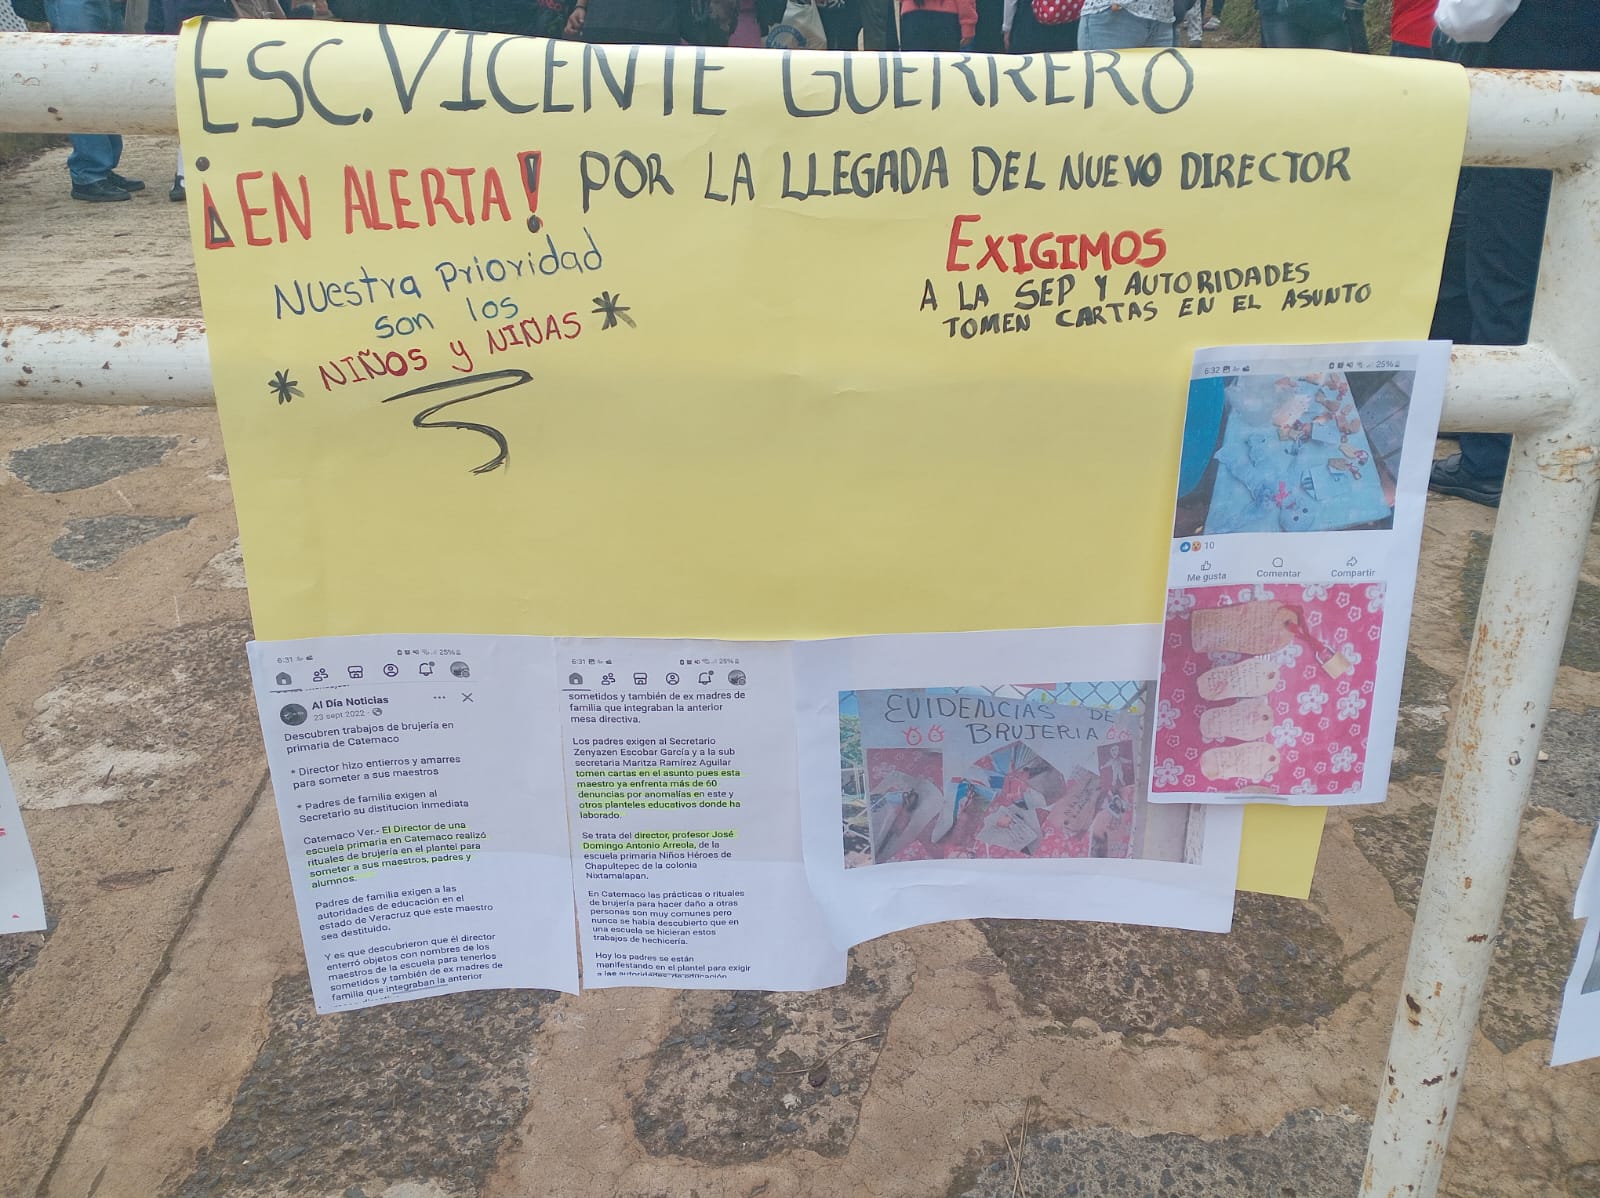 ESC. VICENTE GUERRERO
¡EN ALERTA! POR LA LLEGADA DEL NUEVO DIRECTOR
Nuestra prioridad
son los
* NIÑOS y NIÑAS *
EXIGIMOS
A LA SEP Y AUTORIDADES
TOMEN CARTAS EN EL ASUNTO
6:32
25%
10
Me gusta Comentar Compartir
6:31
25%
Al Día Noticias
23 sept 2022
Descubren trabajos de brujería en
primaria de Catemaco
* Director hizo entierros y amarres
para someter a sus maestros
* Padres de familia exigen al
Secretario su distitucion inmediata
Catemaco Ver.- El Director de una
escuela primaria en Catemaco realizó
rituales de brujería en el plantel para
someter a sus maestros, padres y
alumnos.
Padres de familia exigen a las
autoridades de educación en el
estado de Veracruz que este maestro
sea destituido.
Y es que descubrieron que él director
enterró objetos con nombres de los
maestros de la escuela para tenerlos
sometidos y también de ex madres de
familia que integraban la anterior
6:31
25%
sometidos y también de ex madres de
familia que integraban la anterior
mesa directiva.
Los padres exigen al Secretario
Zenyazen Escobar García y a la sub
secretaria Maritza Ramírez Aguilar
tomen cartas en el asunto pues esta
maestro ya enfrenta más de 60
denuncias por anomalías en este y
otros planteles educativos donde ha
laborado.
Se trata del director, profesor José
Domingo Antonio Arreola, de la
escuela primaria Niños Héroes de
Chapultepec de la colonia
Nixtamalapan.
En Catemaco las prácticas o rituales
de brujería para hacer daño a otras
personas son muy comunes pero
nunca se había descubierto que en
una escuela se hicieran estos
trabajos de hechicería.
Hoy los padres se están
manifestando en el plantel para exigir
a las autoridades de educación
EVIDENCIAS DE
BRUJERIA